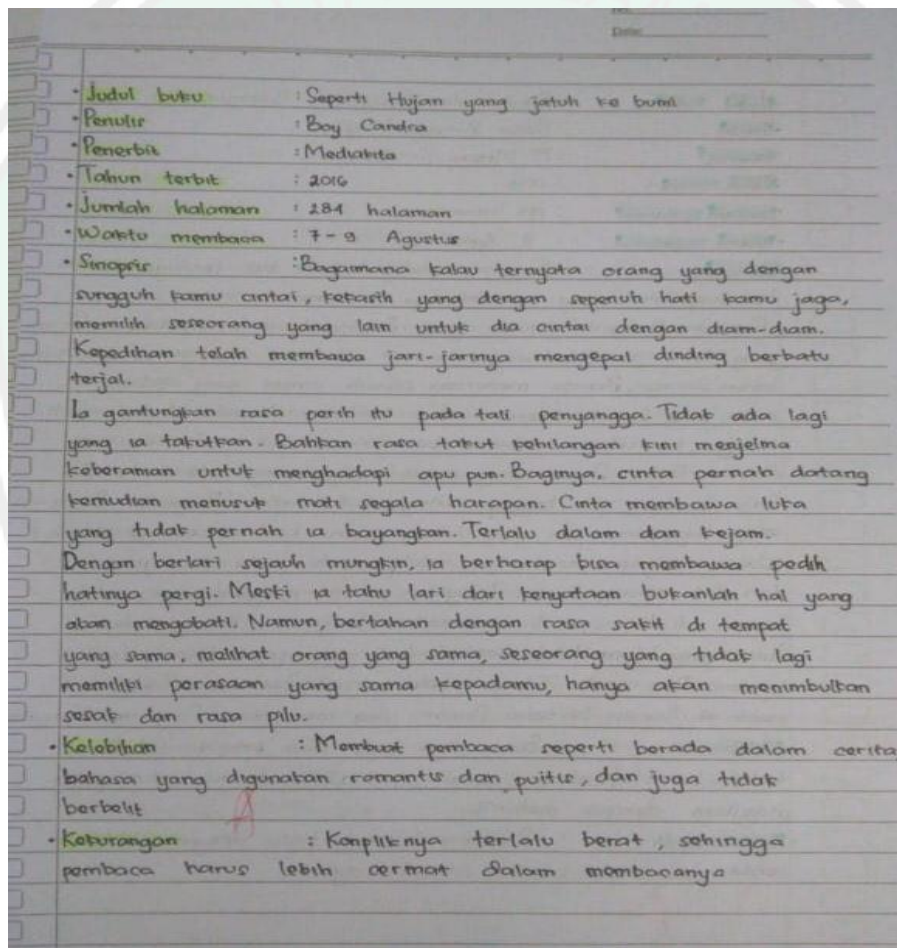 Date:
• Judul buku : Seperti Hujan yang jatuh ke bumi
• Penulis : Boy Candra
• Penerbit : Mediakita
• Tahun terbit : 2016
• Jumlah halaman : 284 halaman
• Waktu membaca : 7 - 9 Agustus
• Sinopsis : Bagaimana kalau ternyata orang yang dengan
sungguh kamu cintai, kekasih yang dengan sepenuh hati kamu jaga,
memilih seseorang yang lain untuk dia cintai dengan diam-diam.
Kepedihan telah membawa jari-jarinya mengepal dinding berbatu
terjal.
Ia gantungkan rasa perih itu pada tali penyangga. Tidak ada lagi
yang ia takutkan. Bahkan rasa takut kehilangan kini menjelma
keberaman untuk menghadapi apa pun. Baginya, cinta pernah datang
kemudian menusuk mati segala harapan. Cinta membawa luka
yang tidak pernah ia bayangkan. Terlalu dalam dan kejam.
Dengan berlari sejauh mungkin, ia berharap bisa membawa pedih
hatinya pergi. Meski ia tahu lari dari kenyataan bukanlah hal yang
akan mengobati. Namun, bertahan dengan rasa sakit di tempat
yang sama, melihat orang yang sama, seseorang yang tidak lagi
memiliki perasaan yang sama kepadamu, hanya akan menimbulkan
sesak dan rasa pilu.
• Kelebihan : Membuat pembaca seperti berada dalam cerita
bahasa yang digunakan romantis dan puitis, dan juga tidak
berbelit
• Kekurangan : Konpliknya terlalu berat, sehingga
pembaca harus lebih cermat dalam membacanya